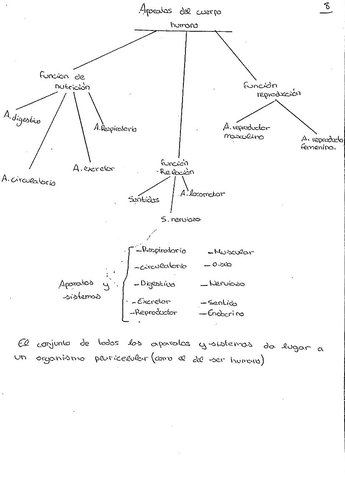 8
Aparatos del cuerpo
humano
Función de
nutrición
Función
reproducción
A. digestivo
A. Respiratorio
A. reproductor
masculino
A. reproducto
femenino.
A. circulatorio
A. excretor
Función
Relación
Sentidos
A. locomotor
S. nervioso
Aparatos y
sistemas
- Respiratorio
- Muscular
- Circulatorio
- Oseo
- Digestivo
- Nervioso
- Excretor
- Sentido
- Reproductor
- Endocrino
El conjunto de todos los aparatos y sistemas da lugar a
un organismo pluricelular (como el del ser humano)